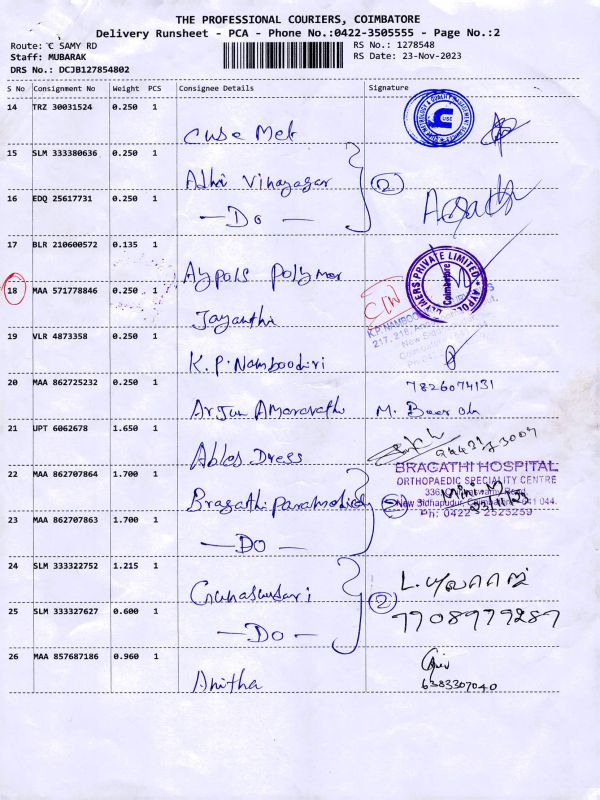 THE PROFESSIONAL COURIERS, COIMBATORE
Delivery Runsheet - PCA - Phone No.:0422-3505555 - Page No.:2
Route: C SAMY RD
RS No.: 1278548
Staff: MUBARAK
RS Date: 23-Nov-2023
DRS No.: DCJB127854802
S No Consignment No Weight PCS Consignee Details Signature
14 TRZ 30031524 0.250 1
15 SLM 333380636 0.250 1
Adhi Vinayagar 2
16 EDQ 25617731 0.250 1
— Do —
17 BLR 210600572 0.135 1
Aypols Polymer
POLYMERS PRIVATE LIMITED
Coimbatore
18 MAA 571778846 0.250 1
Jayanthi
19 VLR 4873358 0.250 1
K.P. Namboodiri
20 MAA 862725232 0.250 1
7826074131
Arjun Amaravathi M.
21 UPT 6062678 1.650 1
Ables Dress
22 MAA 862707864 1.700 1
BRAGATHI HOSPITAL
ORTHOPAEDIC SPECIALITY CENTRE
Bragathi 2
New Sidhapudur, Coimbatore - 641 044.
Ph: 0422 - 2525259
23 MAA 862707863 1.700 1
— DO —
24 SLM 333322752 1.215 1
Gunasundari 2
25 SLM 333327627 0.600 1
7708979289
— Do —
26 MAA 857687186 0.960 1
Anitha
6383307040